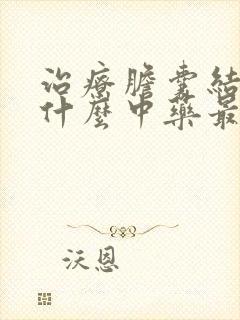 治療膽囊結
什麼中藥最
沃恩